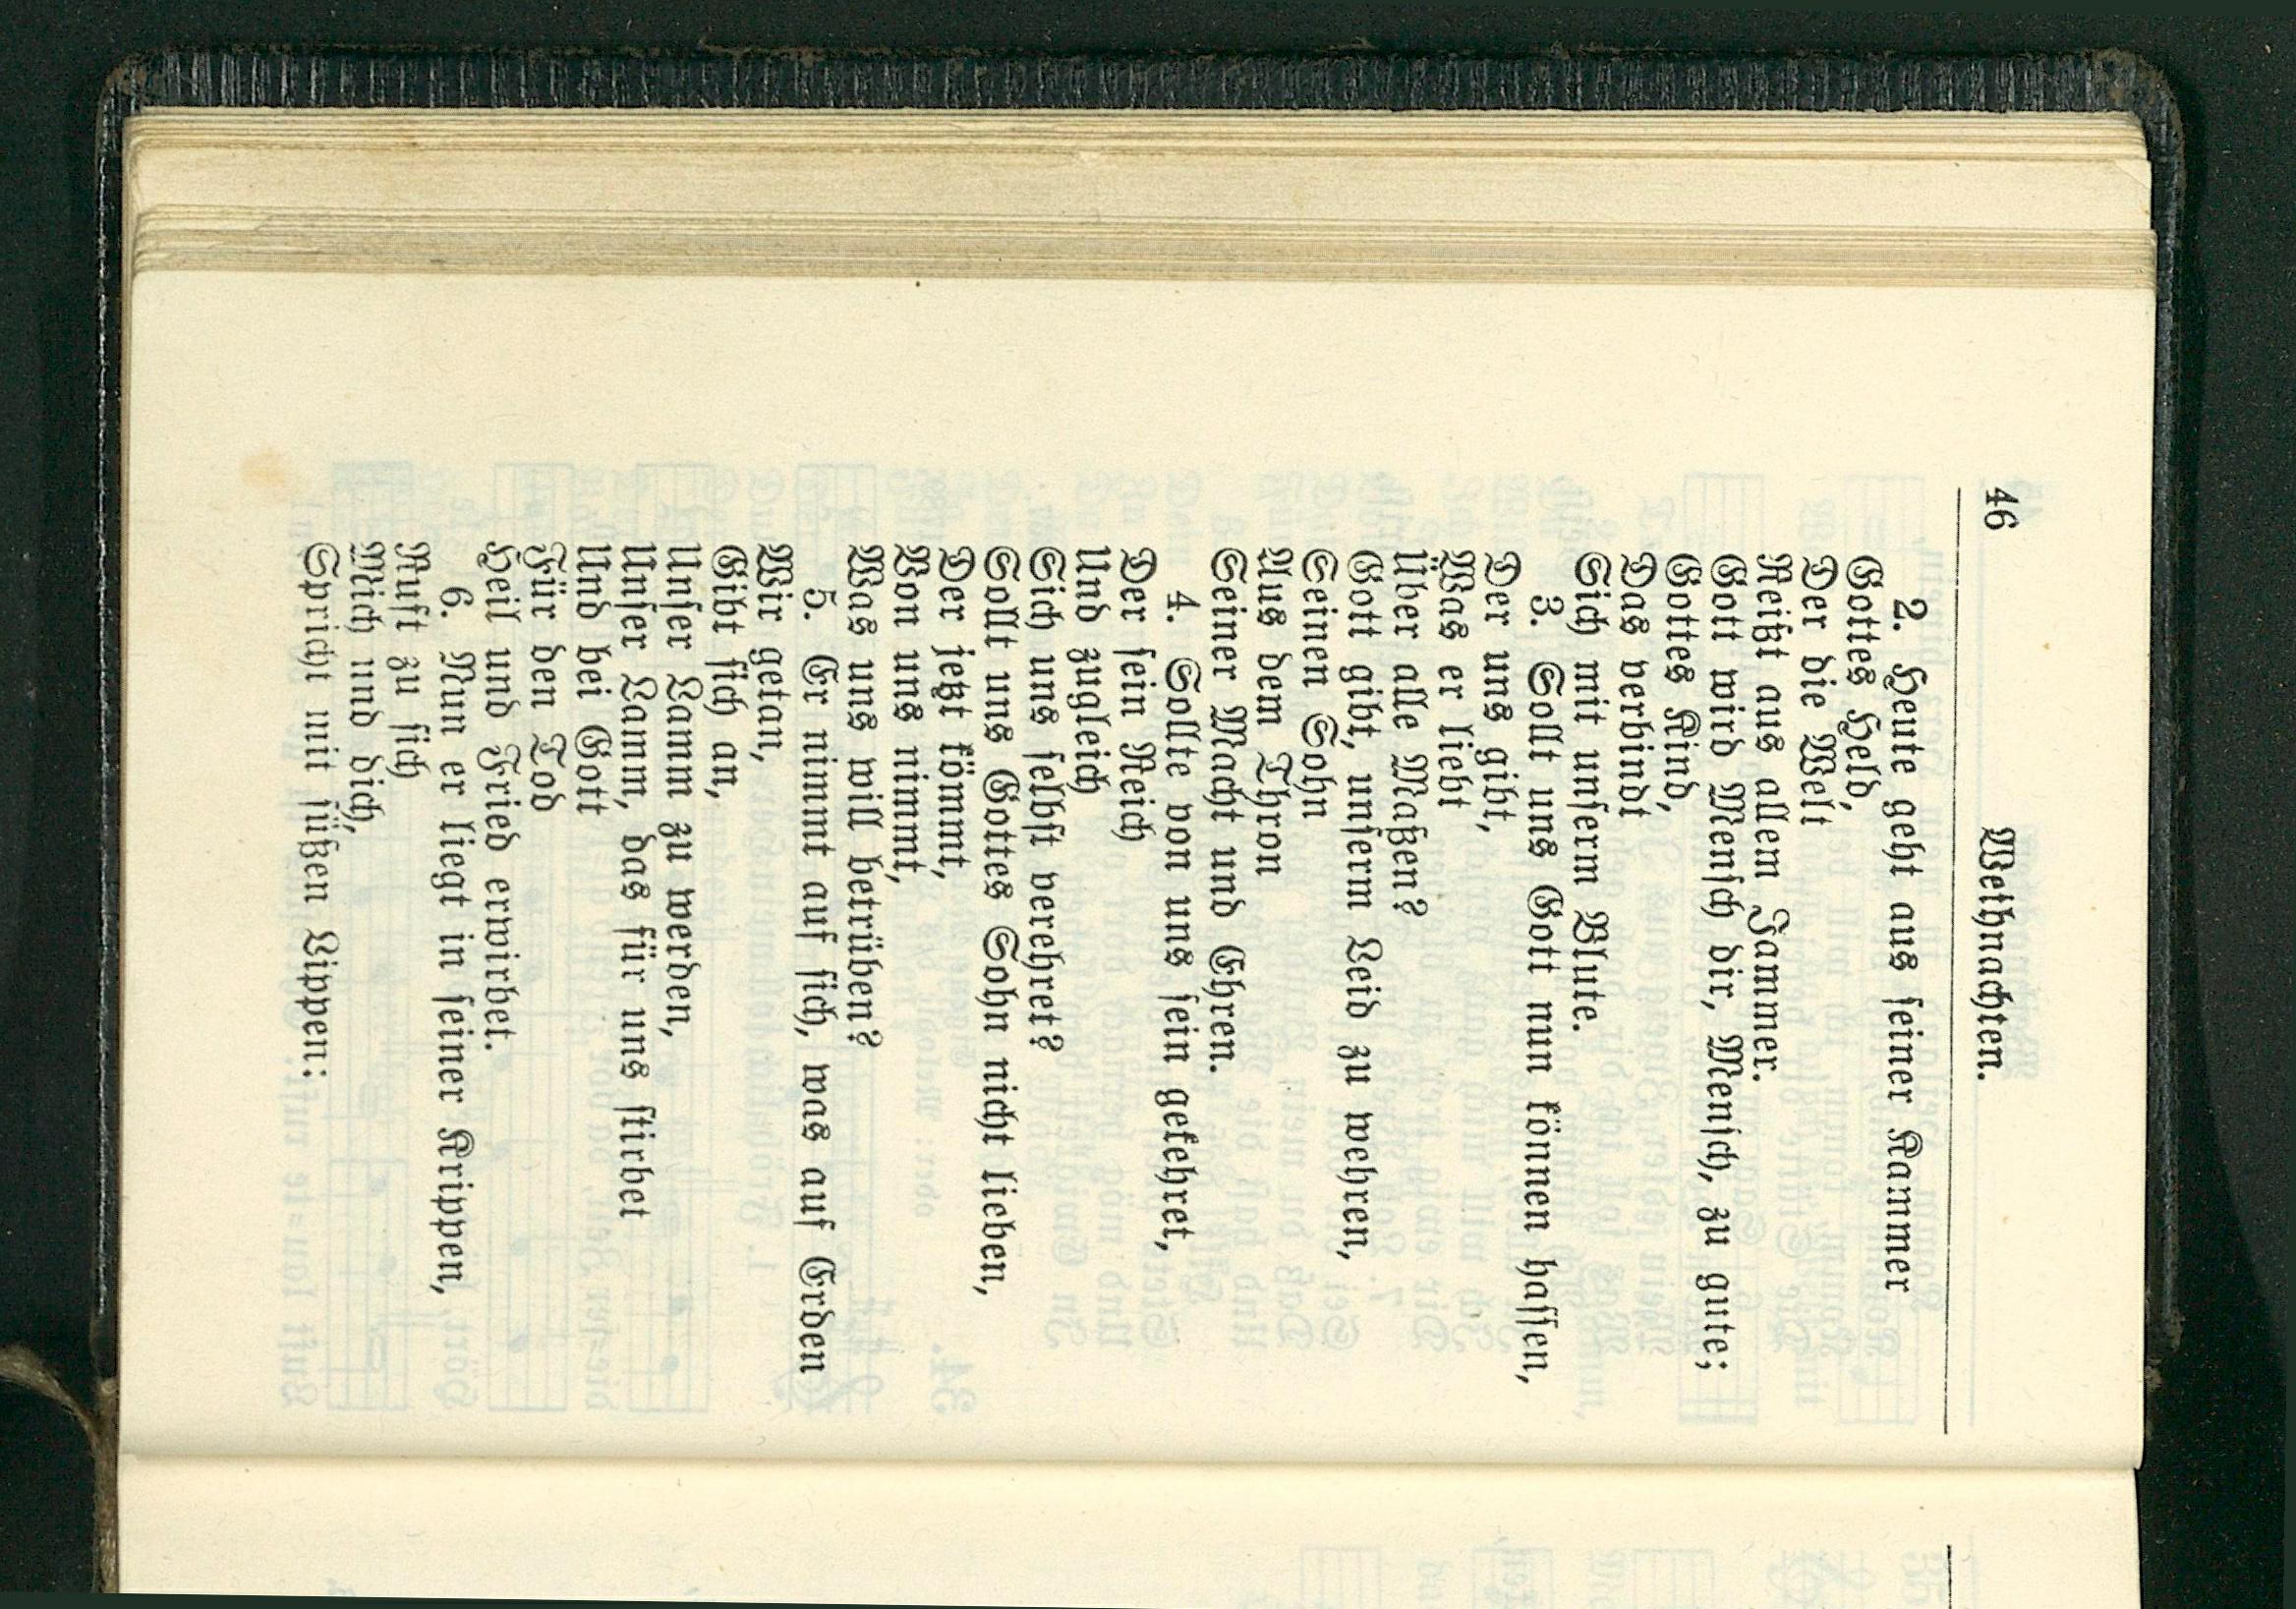 46 Weihnachten.
2. Heute geht aus seiner Kammer
Gottes Held,
Der die Welt
Reißt aus allem Jammer.
Gott wird Mensch dir, Mensch, zu gute;
Gottes Kind,
Das verbindt
Sich mit unserm Blute.
3. Sollt uns Gott nun können hassen,
Der uns gibt,
Was er liebt
Über alle Maßen?
Gott gibt, unserm Leid zu wehren,
Seinen Sohn
Aus dem Thron
Seiner Macht und Ehren.
4. Sollte von uns sein gekehret,
Der sein Reich
Und zugleich
Sich uns selbst verehret?
Sollt uns Gottes Sohn nicht lieben,
Der jetzt kömmt,
Von uns nimmt,
Was uns will betrüben?
5. Er nimmt auf sich, was auf Erden
Wir getan,
Gibt sich an,
Unser Lamm zu werden,
Unser Lamm, das für uns stirbet
Und bei Gott
Für den Tod
Heil und Fried erwirbet.
6. Nun er liegt in seiner Krippen,
Ruft zu sich
Mich und dich,
Spricht mit süßen Lippen: